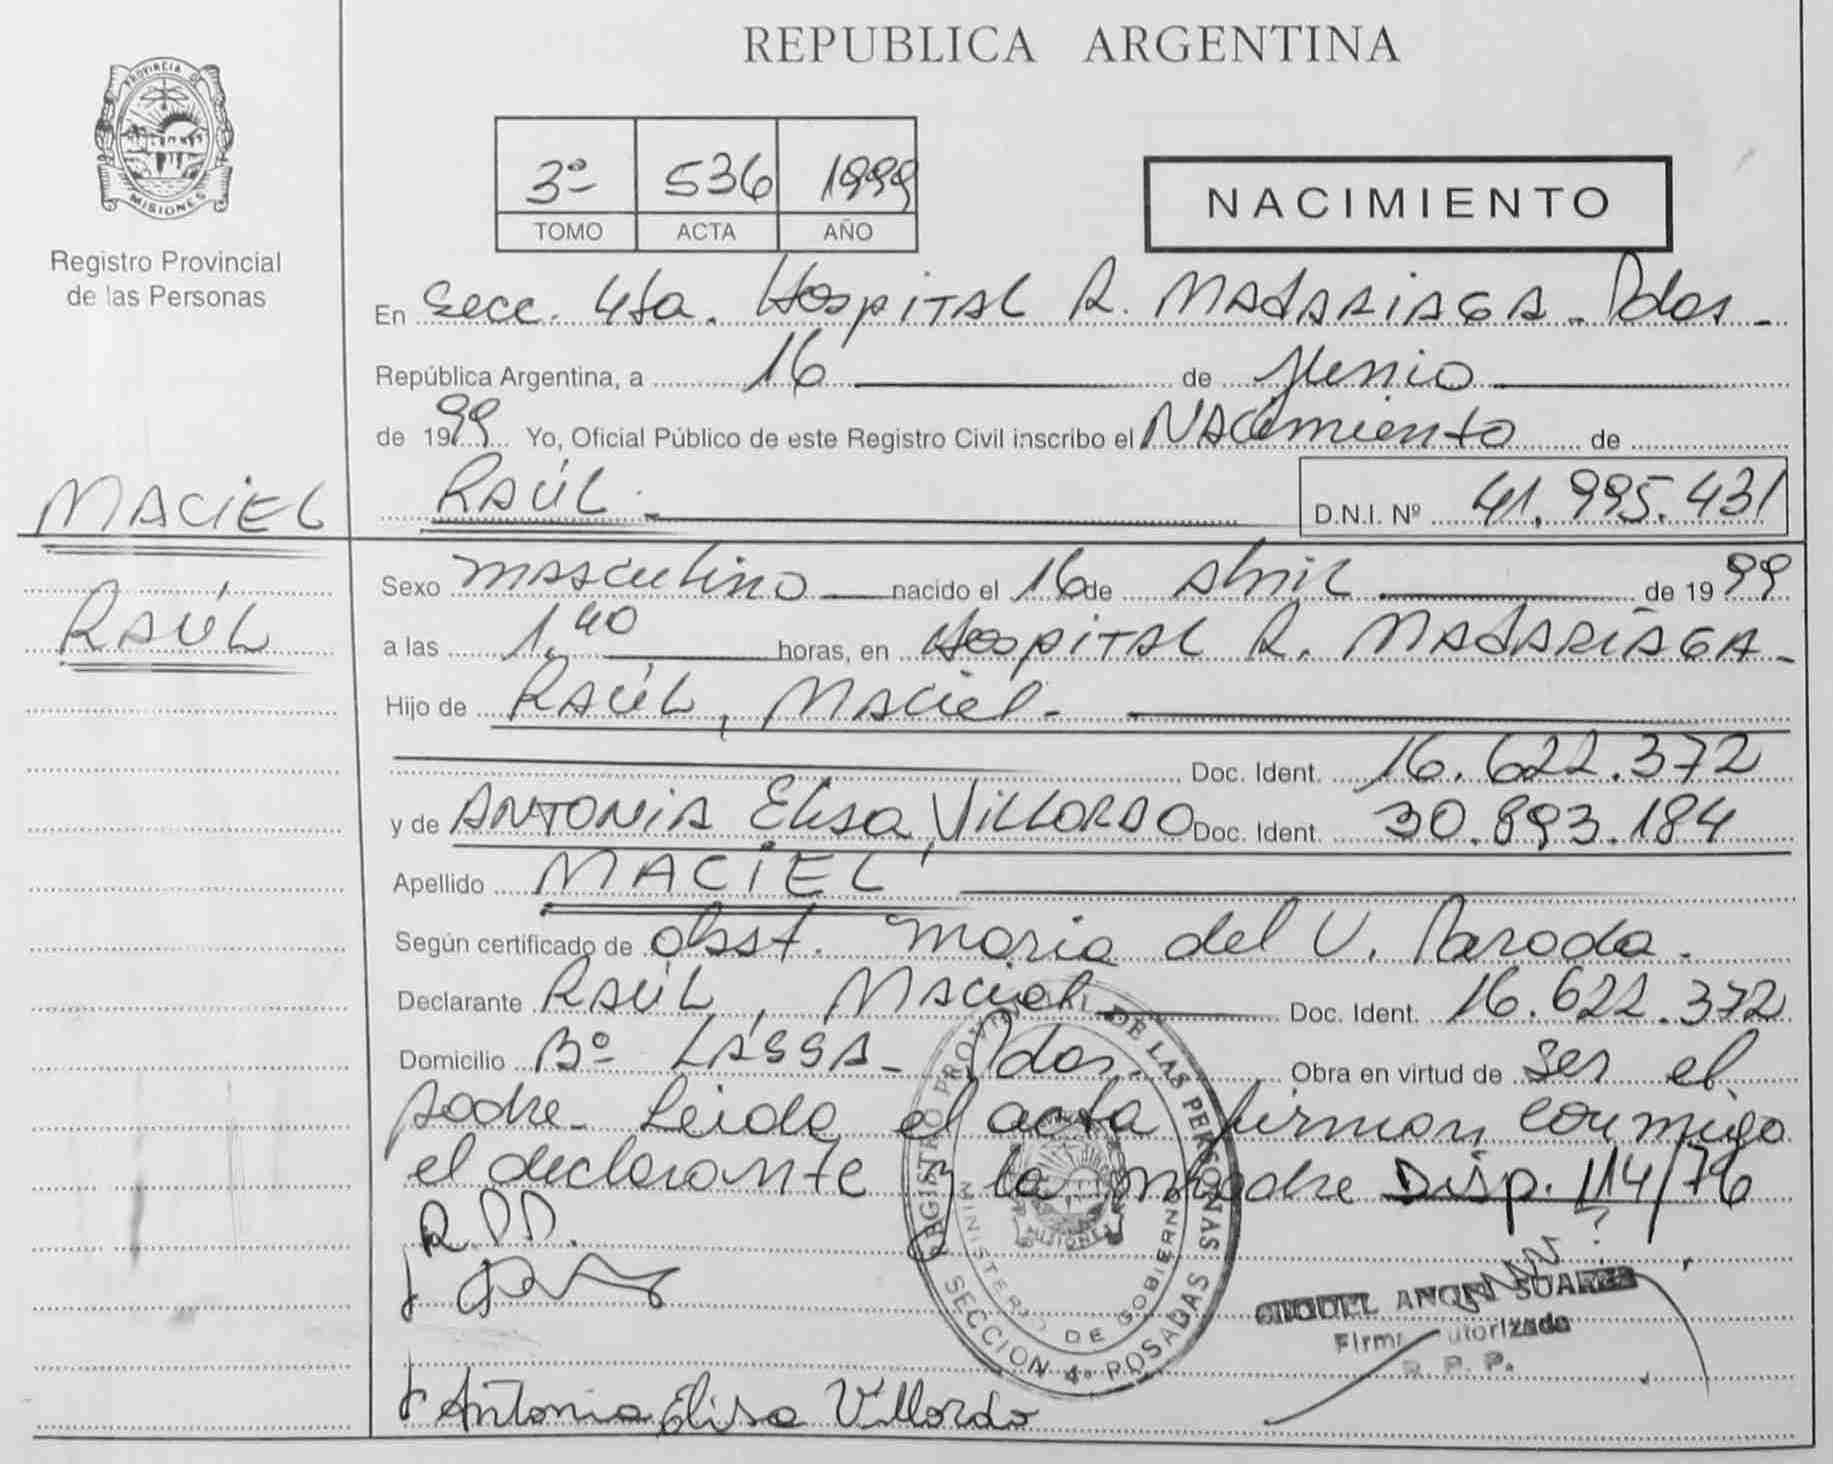 REPUBLICA ARGENTINA
PROVINCIA D
MISIONES
Registro Provincial
de las Personas
3º 536 1999
TOMO ACTA AÑO
NACIMIENTO
En Secc. 4ta. Hospital R. MADARIAGA - Pdas -
República Argentina, a 16 de Junio
de 1999 Yo, Oficial Público de este Registro Civil inscribo el NACimiento de
MACIEL
RAÚL
RAÚL.
D.N.I. Nº 41.995.431
Sexo masculino nacido el 16 de Abril de 1999
a las 1,40 horas, en Hospital R. MADARIAGA -
Hijo de RAÚL, Maciel -
Doc. Ident. 16.622.372
y de ANTONIA Elisa, VILLORDO Doc. Ident. 30.893.184
Apellido MACIEL
Según certificado de Obst. Maria del V. Paroda.
Declarante RAÚL, Maciel Doc. Ident. 16.622.372
Domicilio Bº LASSA - Pdas. Obra en virtud de ser el
padre - Leida el acta firman conmigo
el declarante y la madre Disp. 114/76
R.PP.
REGISTRO PROVINCIAL DE LAS PERSONAS
MINISTERIO DE GOBIERNO
MISIONES
SECCION 4º POSADAS
MIGUEL ANGEL SUAREZ
Firma Autorizada
R. P. P.
Antonia Elisa Villordo